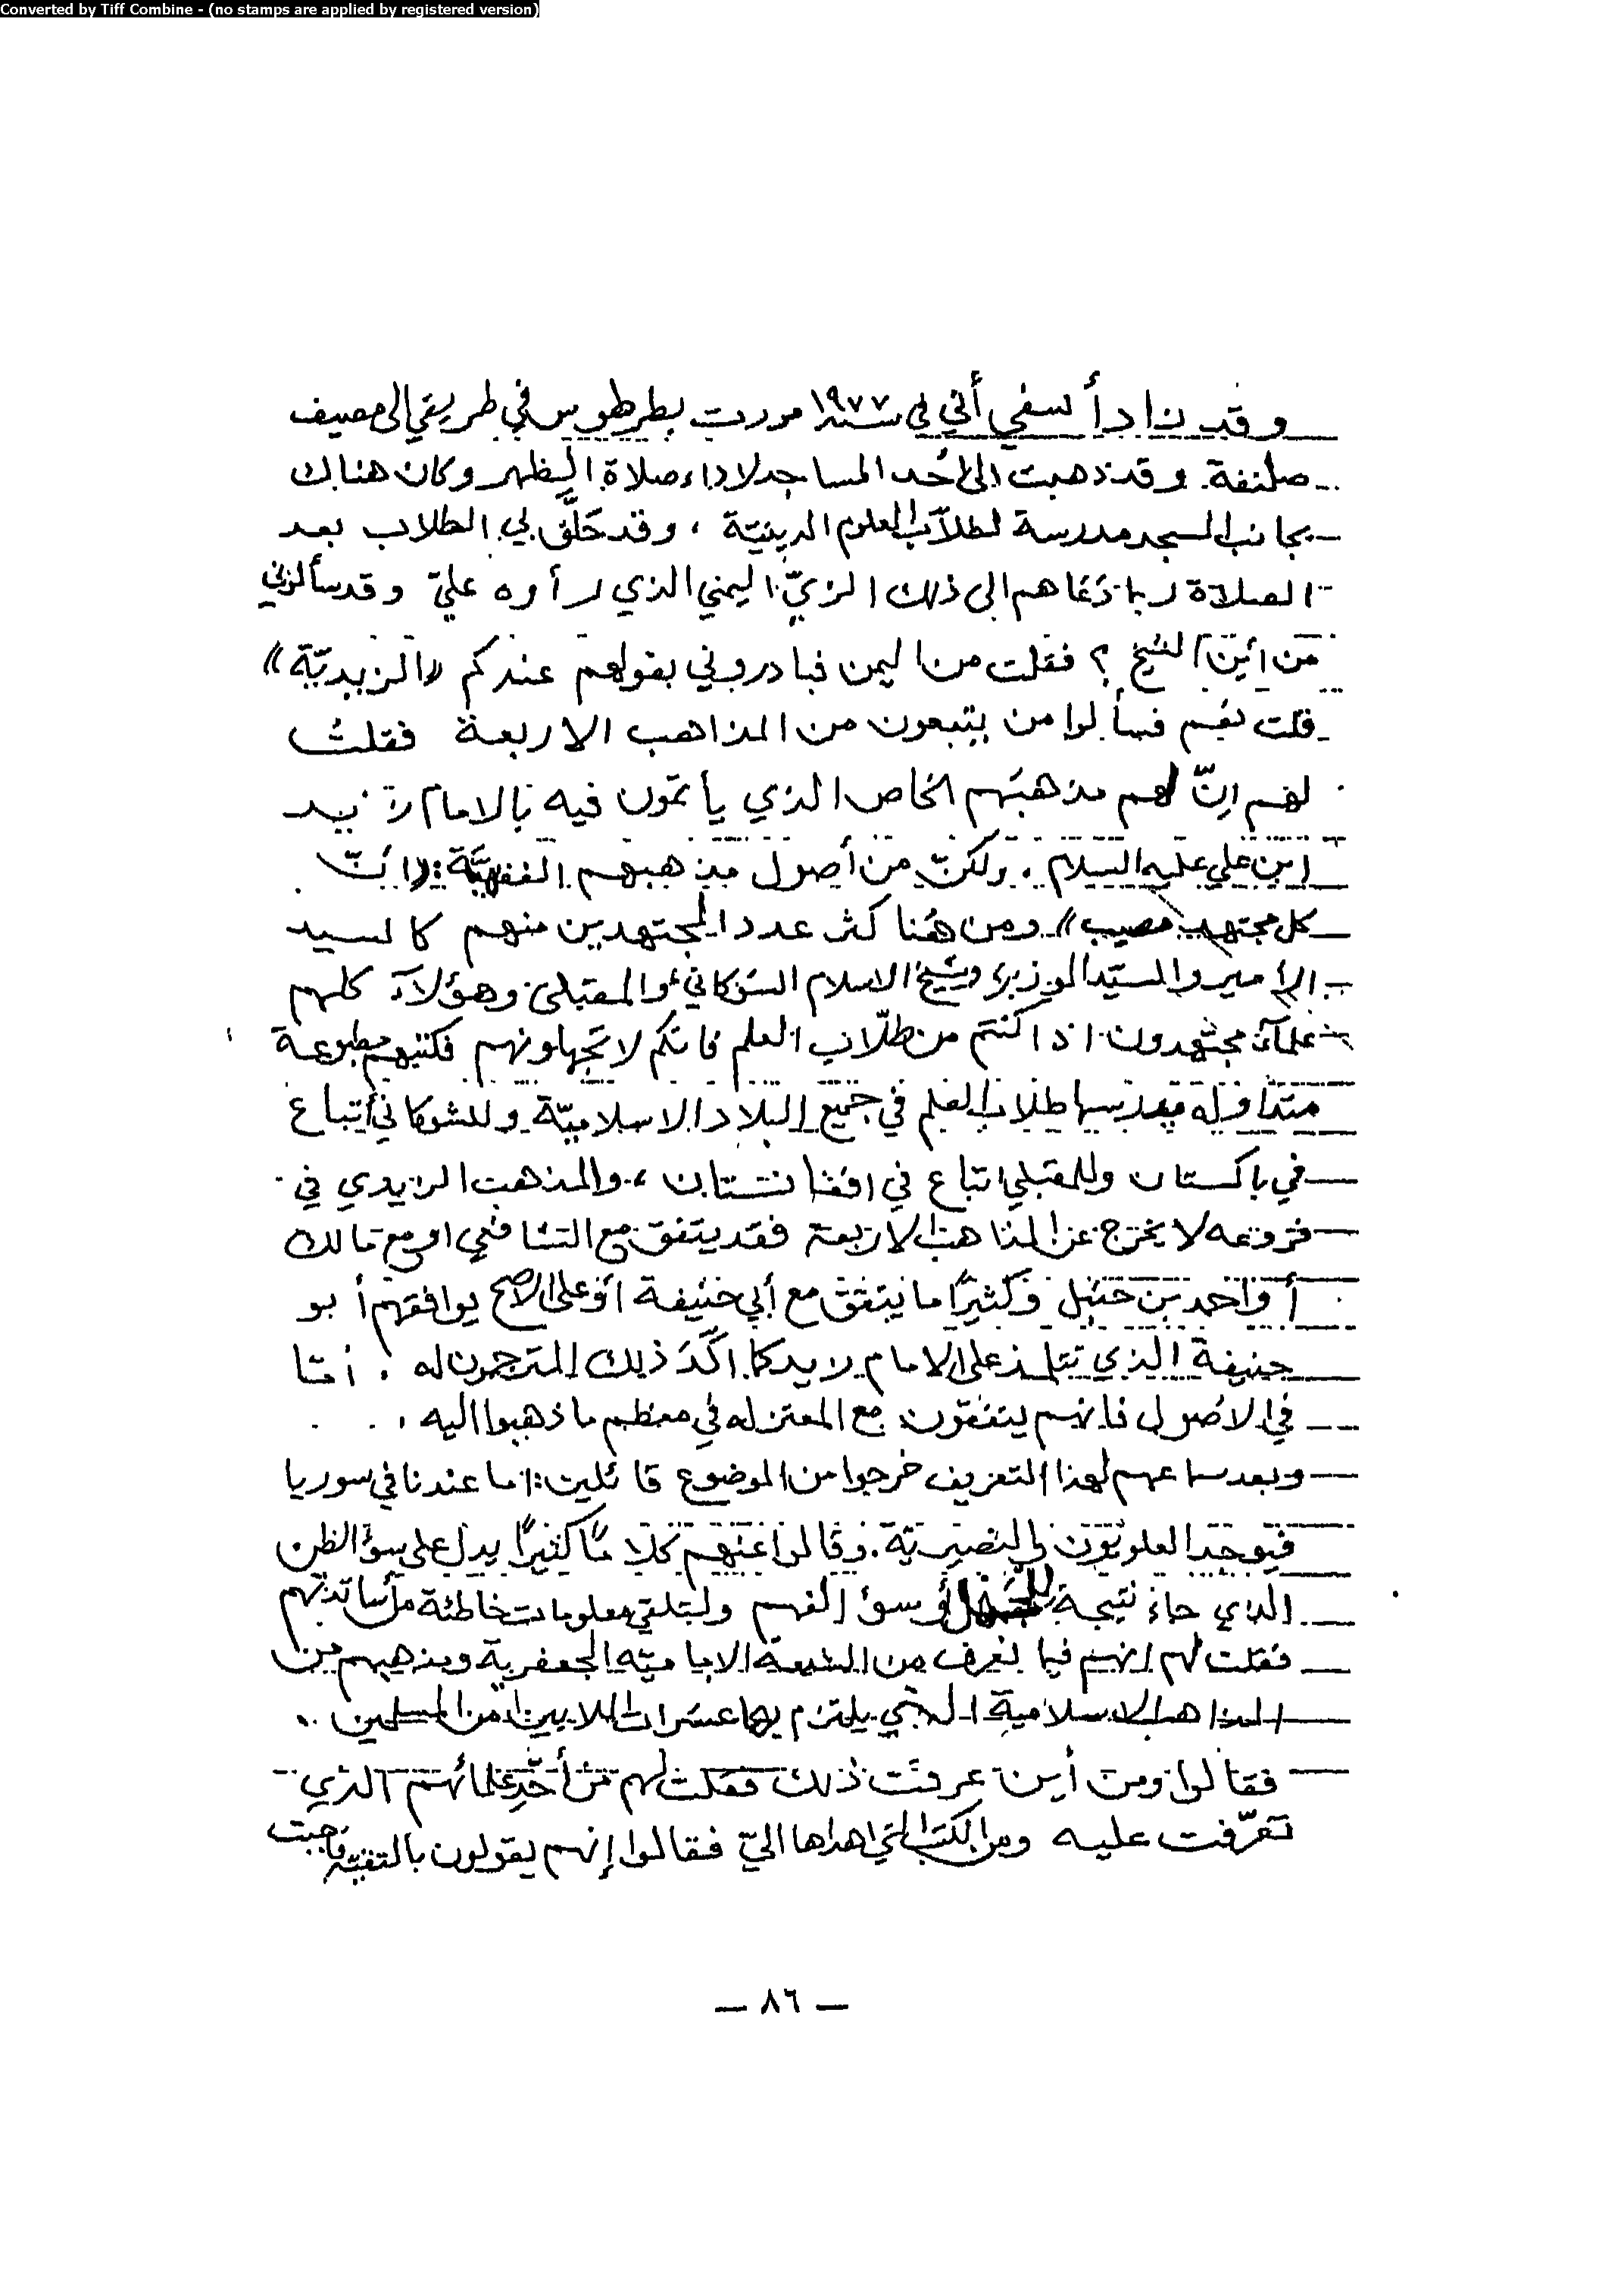 Converted by Tiff Combine - (no stamps are applied by registered version)
وقد زاد أسفي أني في سنة ١٩٧٧ مررت بطرطوس في طريقي الى مصيف
صلنفة وقد ذهبت الى أحد المساجد لاداء صلاة الظهر وكان هناك
بجانب المسجد مدرسة لطلاّب العلوم الدينيّة ، وقد حَلَّق بي الطلاب بعد
الصلاة ربما دَعَاهم الى ذلك الزيّ اليمني الذي رأوه عليّ وقد سألوني
من أين الشيخ ؟ فقلت من اليمن فبادروني بقولهم عندكم «الزيديّة»
قلت نعم فسألوا من يتبعون من المذاهب الاربعة فقلت
لهم إنّ لهم مذهبَهم الخاص الذي يأتمّون فيه بالامام زيد
ابن علي عليه السلام . ولكنّ من أصول مذهبهم الفقهيَّة : «أنّ
كل مجتهد مصيب» ومن هُنا كثر عدد المجتهدين منهم كالسيد
الأمير والسيّد الوزير وشيخ الاسلام الشوكاني والمقبلي وهؤلآء كلهم
علمآء مجتهدون اذا كنتم من طلّاب العلم فانكم لا تجهلونهم فكتبهم مطبوعة
متداوله يدرسها طلاب العلم في جميع البلاد الاسلاميّة وللشوكاني أتباع
في باكستان وللمقبلي اتباع في افغانستان ، والمذهب الزيدي في
فروعه لا يخرج عن المذاهب الاربعة فقد يتفق مع الشافعي او مع مالك
أو احمد بن حنبل وكثيرًا ما يتفق مع أبي حنيفة أو على الاصح يوافقهم أبو
حنيفة الذي تتلمذ على الامام زيد كما اكّدَ ذلك المترجمون له . أمّا
في الاُصول فانهم يتفقون مع المعتزله في معظم ما ذهبوا اليه .
وبعد سماعهم لهذا التعريف خرجوا من الموضوع قائلين : اما عندنا في سوريا
فيوجد العلويّون والنصيريّة . وقالوا عنهم كلامًا كثيرًا يدل على سوء الظن
الذي جاء نتيجة للجهل أو سوء الفهم ولتلقي معلومات خاطئة من أساتذتهم
فقلت لهم انهم فيما نعرف من الشيعة الاماميّه الجعفرية ومذهبهم من
المذاهب الاسلامية التي يلتزم بها عشرات الملايين من المسلمين ..
فقالوا ومن أين عرفت ذلك فقلت لهم من أحد علمائهم الذي
تعرّفت عليه ومن الكتب التي اهداها اليّ فقالوا إنهم يقولون بالتقيّه فأجبت
— ٨٦ —